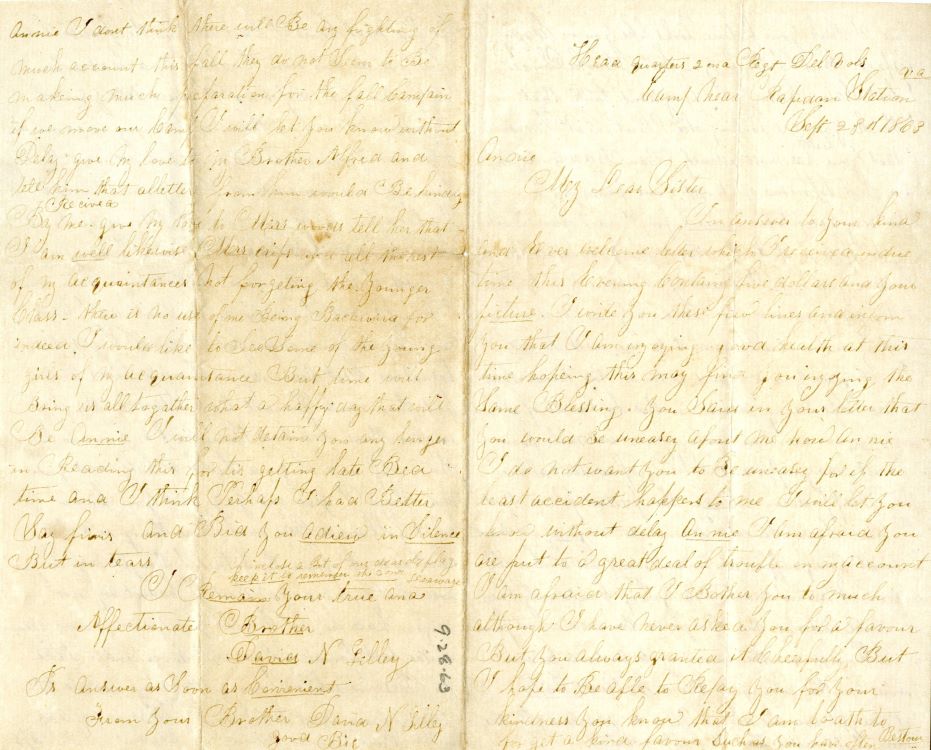 Head quarters 2ond Regt Del Vols
Camp Near Rapidan Station va
Sept. 28th 1863
Annie
My Dear Sister
In answer to your kind
and Ever welcome letter which I received in due
time this Evening Containg five dollars and your
picture. I write you these few lines and inform
you that I am enjoying good health at this
time hopeing this may find you injoying the
Same Blessing. You Said in your letter that
you would Be uneasey about me now Annie
I do not want you to Be uneasey for if the
least accident happens to me I will let you
know without delay Annie I am afraid you
are put to a great deal of trouble on my account
I am afraid that I Bother you to much
although I have never asked you for a favour
But you always granted it Cheerfully But
I hope to Be able to Repay you for your
kindness you know that I am loath to
forget a kind favour Such as you have
Bestow
Annie I dont think there will Be any fighting of
much account this fall they do not Seem to Be
makeing much preparation for the fall Campain
if we move our Camp I will let you know without
Delay give my love to my Brother Alfred and
tell him that a letter from him would Be kindly
Received
By me give my love to Miss tell her that
I am well likewise Mrs and all the rest
of my acquaintances not forgeting the Younger
Class. there is no use of me Being Backward for
indeed I would like to See Some of the young
girls of my acquaintance But time will
Bring us all togather what a happy day that will
Be Annie I will not detain you any longer
in Reading this for tis getting late Bed
time and I think Perhaps I had Better
Say finis and Bid you adieu in Silence
But in tears
I enclose a Bit of my dear old flag
keep it to remember the Delaware
I Remain Your true and
Affectionate Brother
David N Lilley
P.s Answer as Soon as Convenient
From your Brother David N Lilley
good Bie
9.28.63